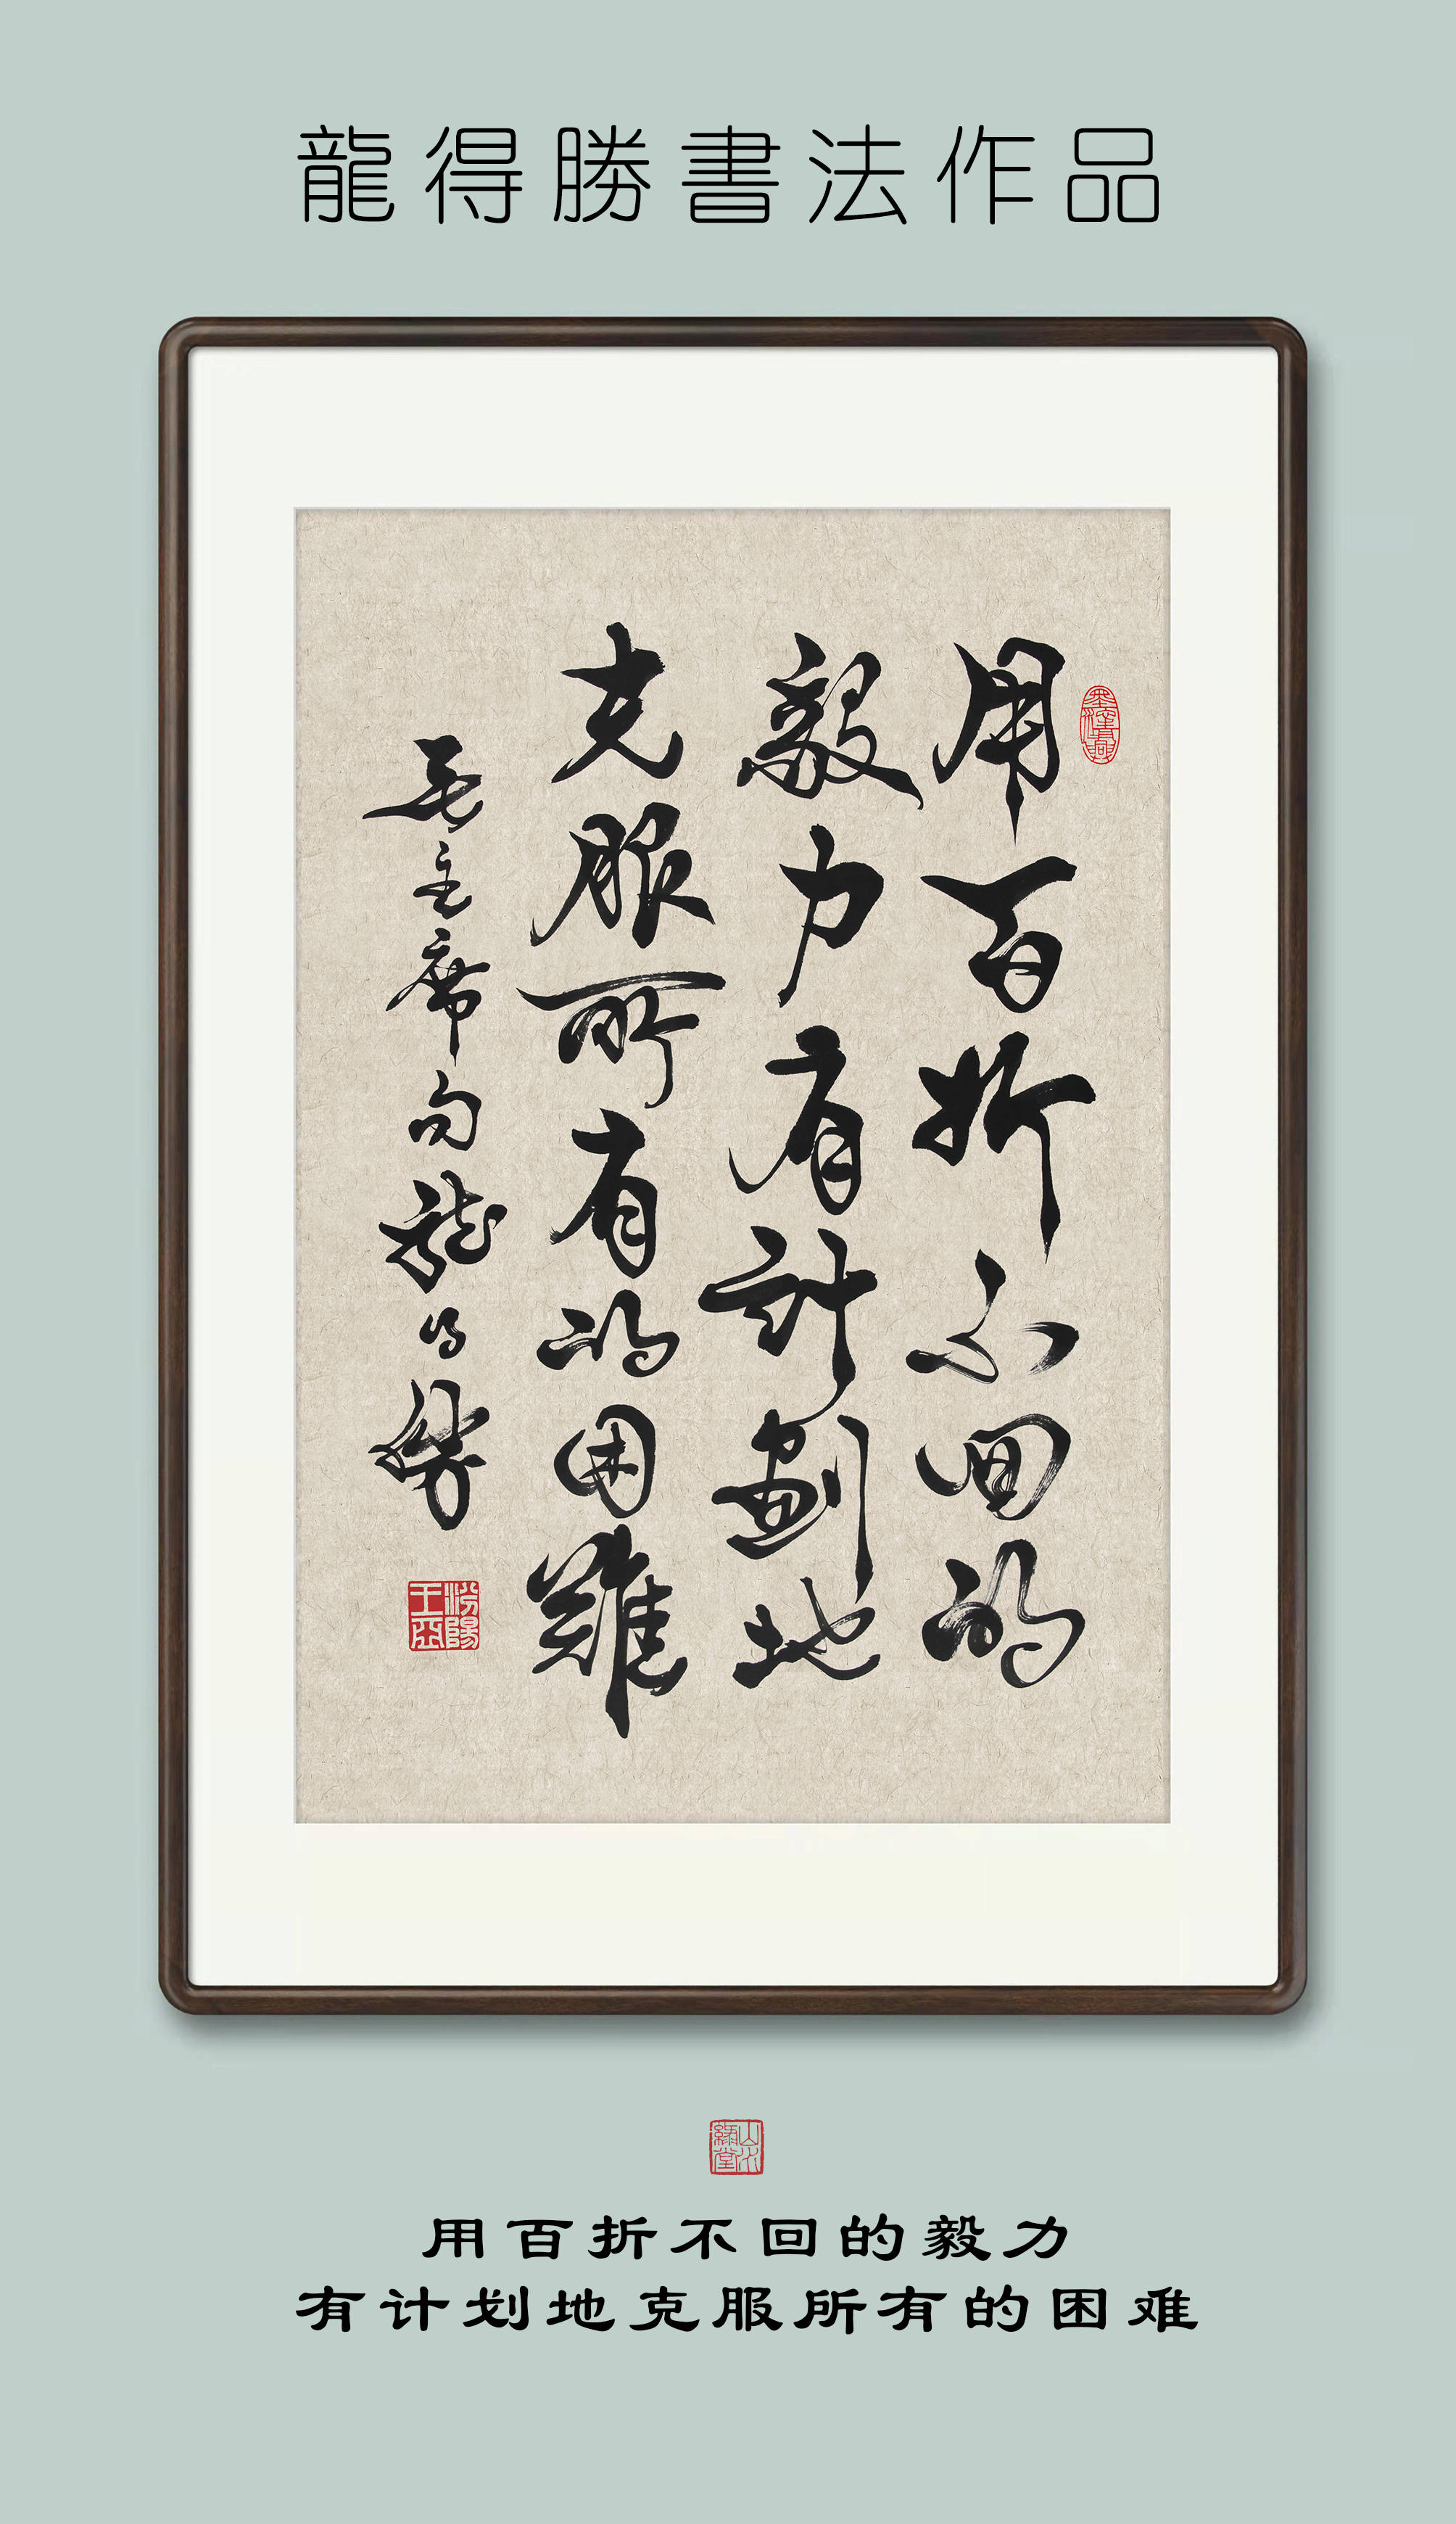 龍得勝書法作品
用百折不回的
毅力有計劃地
克服所有的困難
毛主席句龍得勝
汾陽
王氏
山水
緣堂
用百折不回的毅力
有计划地克服所有的困难